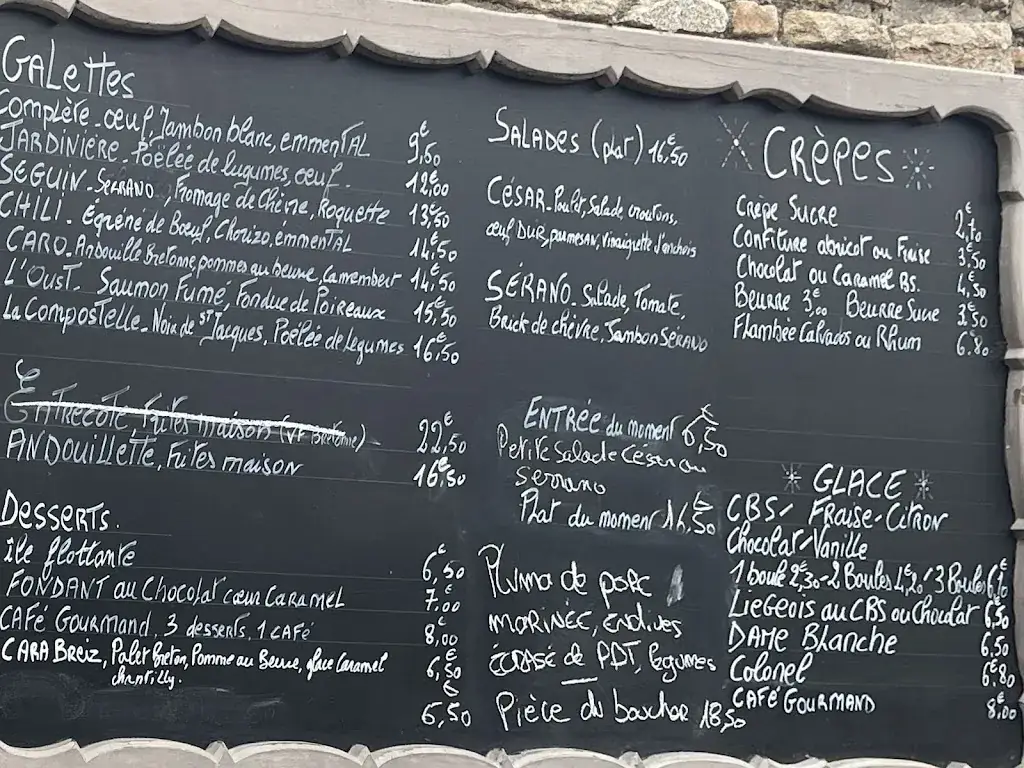 GALETTES
Complète - œuf, Jambon blanc, emmenTAL 9€,50
JARDINIÈRE - Poêlée de lugumes, œuf. 12€,00
SEGUIN - SERRANO, Fromage de Chèvre, Roquette 13€,50
CHILI. Égréné de Bœuf, Chorizo, emmenTAL 14€,50
CARO. Andouille Bretonne, pommes au beurre, Camembert 14€,50
L'OUST. Saumon Fumé, Fondue de Poireaux 15€,50
La Compostelle - Noix de ST Jacques, Poêlée de legumes 16€,50
ENTRECÔTE, Frites maisons (VF Bretonne) 22€,50
ANDOUILLETTE, Frites maison 16€,50
Desserts.
île flottante 6€,50
FONDANT au Chocolat cœur CARAMEL 7€,00
CAFé Gourmand. 3 desserts, 1 CAFé 8€,00
CARA Breiz, Palet Breton, Pomme au Beurre, glace Caramel 6€,50
chantilly.
6€,50
SALADES (plat) 16€,50
CÉSAR - Poulet, Salade, croutons,
œuf DUR, parmesan, vinaigrette d'anchois
SÉRANO - Salade, Tomate,
Brick de chèvre, Jambon SÉRANO
ENTRÉE du moment 6€,50
Petite Salade Cesar ou
serrano
Plat du moment 14€,50
Pluma de porc
MARINÉE, Endives
écrasé de PDT, légumes
Pièce du boucher 18,50
CRÊPES
Crêpe Sucre 2€,70
Confiture abricot ou Fraise 3€,50
Chocolat ou Caramel BS. 4€,50
Beurre 3€,00 Beurre Sucre 3€,50
Flambée Calvados ou Rhum 6€,80
GLACE
CBS / FRAISE - CITRON
Chocolat / Vanille
1 boule 2€,30 - 2 Boules 4€,20 / 3 Boules 6€,10
LIEGEOIS au CBS ou Chocolat 6€,50
DAME Blanche 6,50
Colonel 6€,80
CAFÉ GOURMAND 8€,00